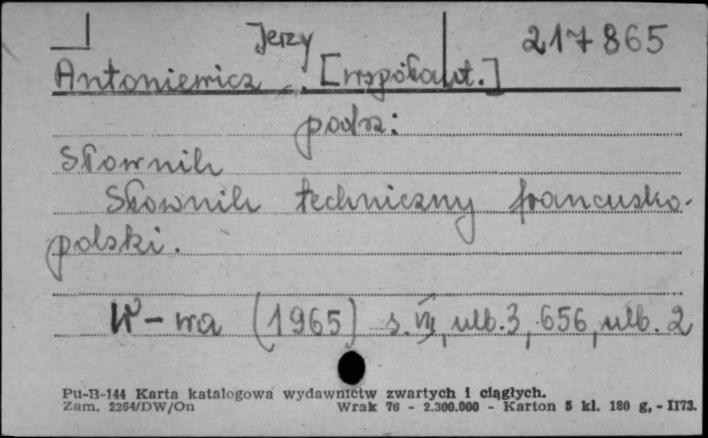 Jerzy 217865
Antoniewicz . [współaut.]
podz:
Słownik
Słownik techniczny francusko-
polski.
W-wa (1965) s. VII, nlb. 3, 656, nlb. 2
Pu-B-144 Karta katalogowa wydawnictw zwartych i ciągłych.
Zam. 2264/DW/On Wrak 76 - 2.300.000 - Karton 5 kl. 180 g, - II73.